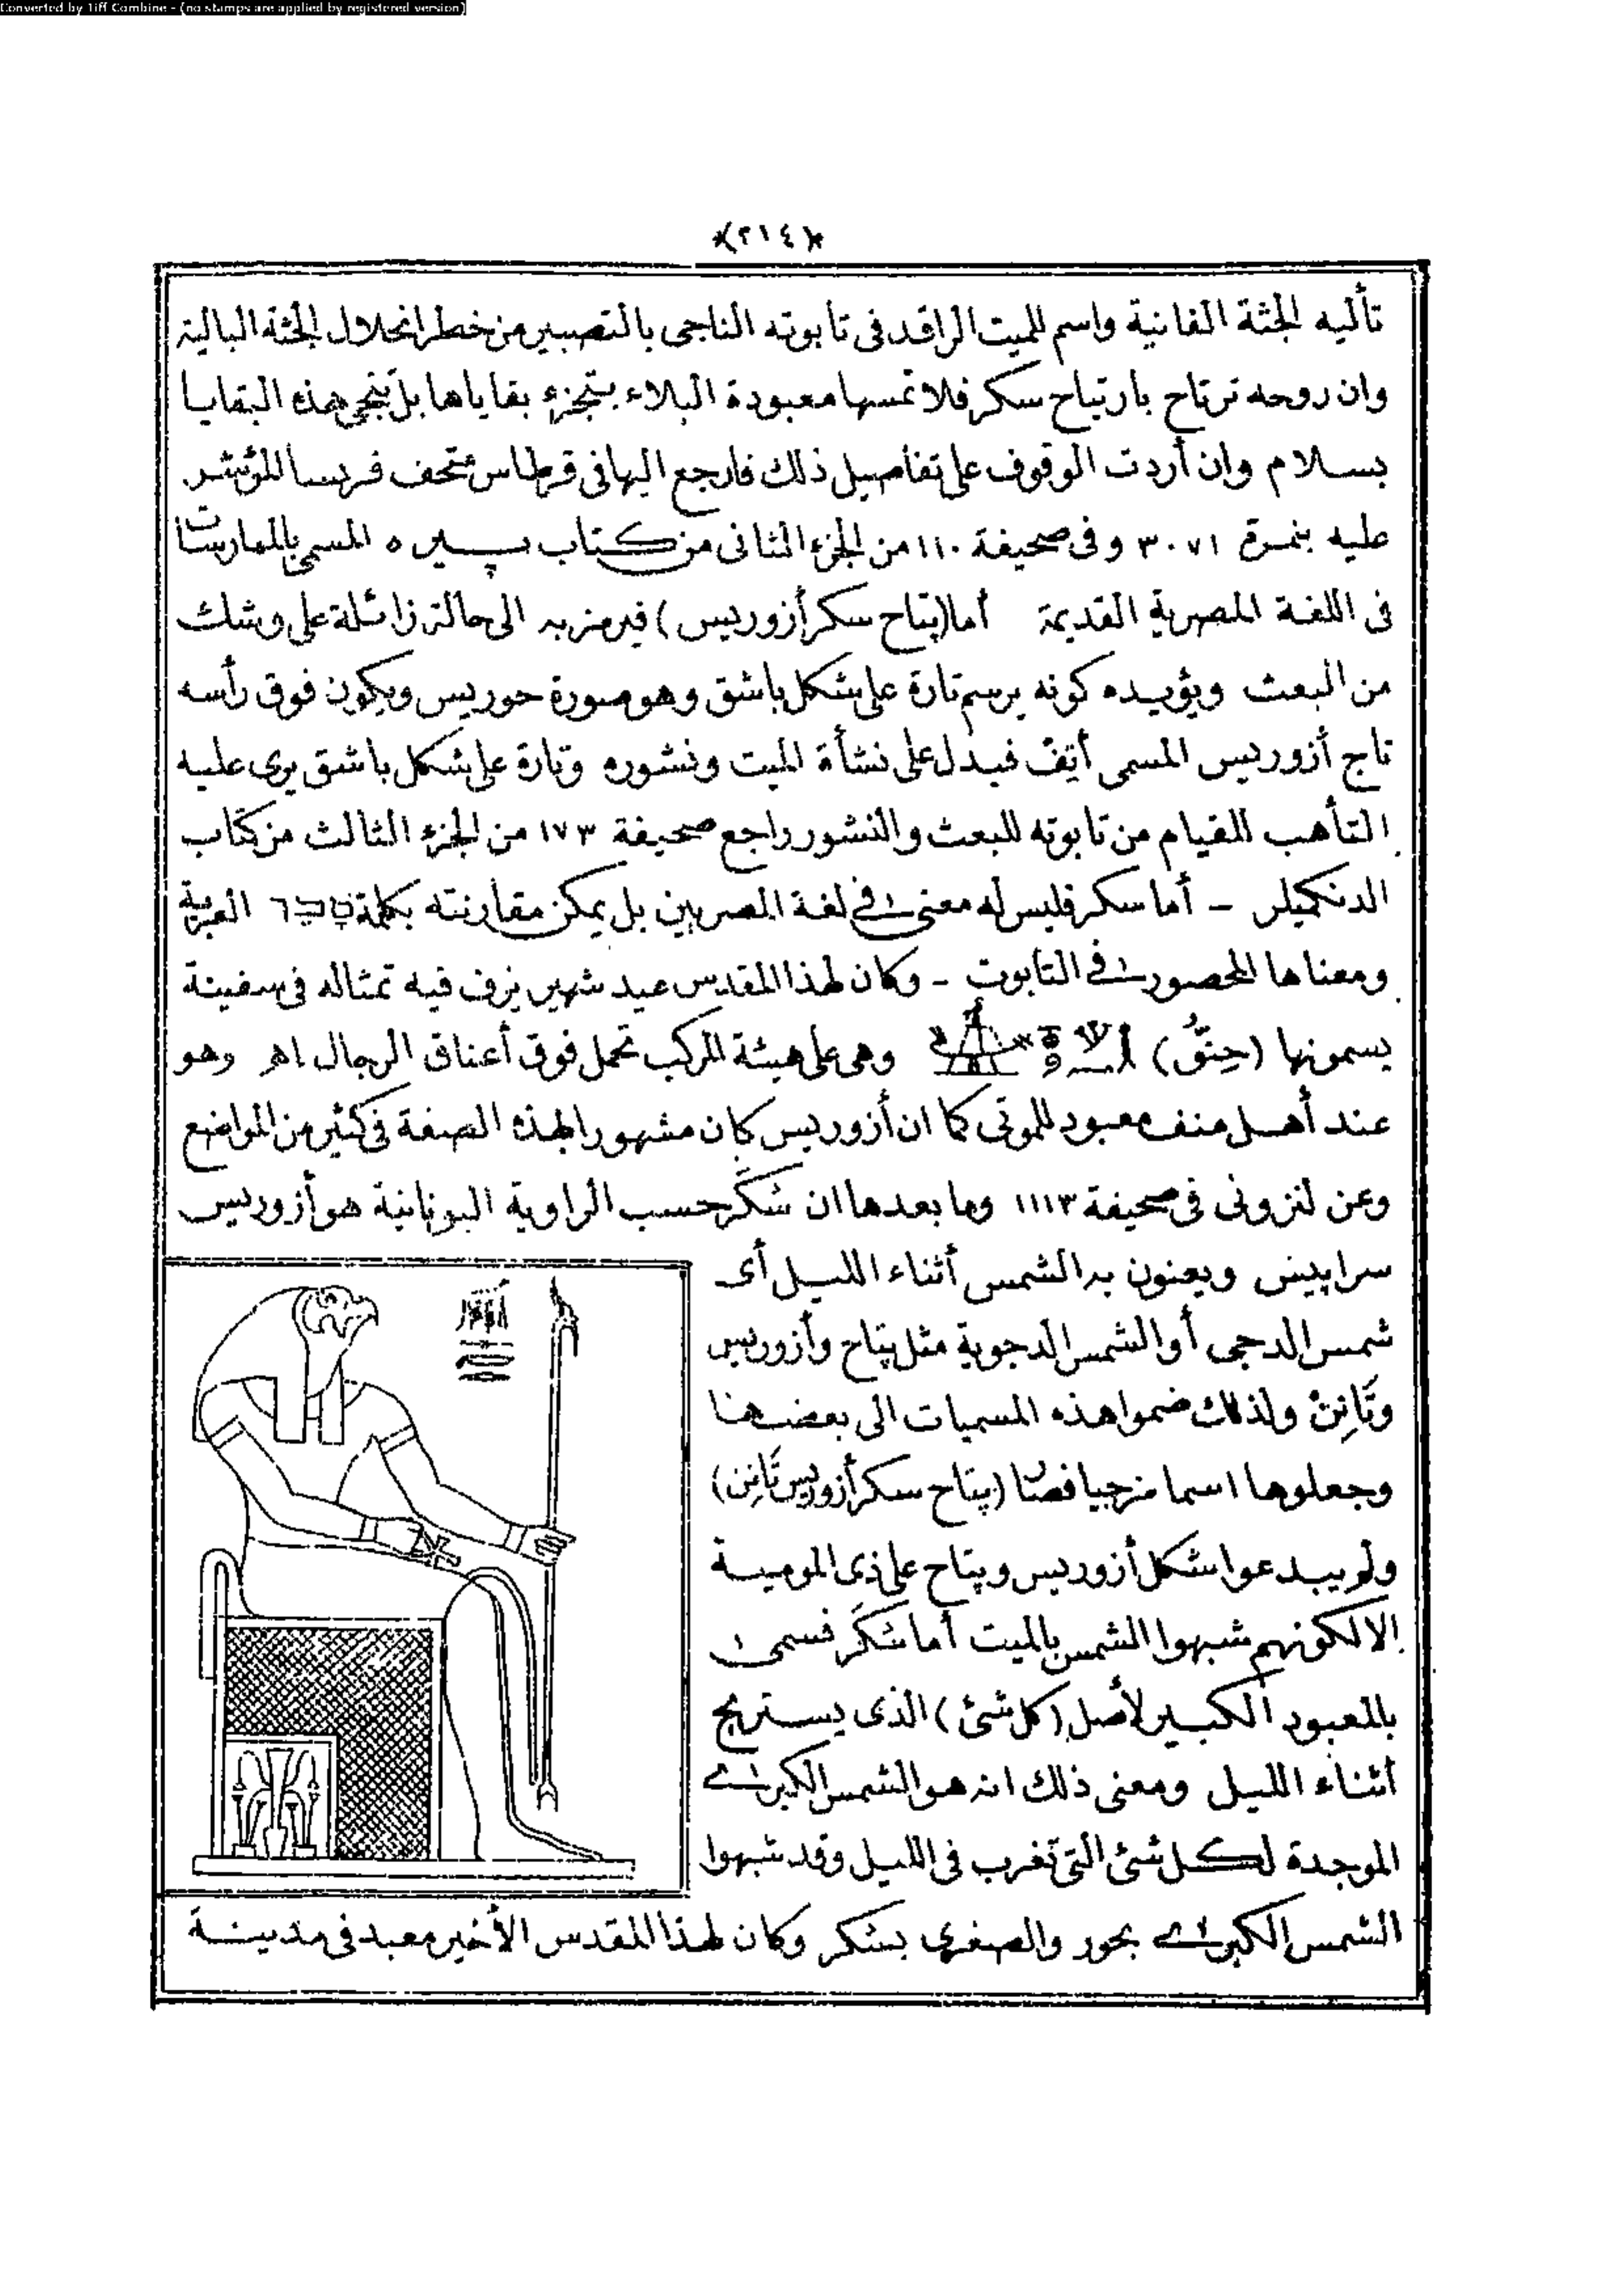 Converted by Tiff Combine - (no stamps are applied by registered version)
(٢١٤)
تأليه الجثة الفانية واسم للميت الراقد فى تابوته الناجى بالتصبير من خطر انحلال الجثة البالية
وان روحه ترتاح بارتياح سكر فلا تمسها معبودة البلاء بتجزء بقاياها بل تنجى هذه البقايا
بسلام وان أردت الوقوف على تفاصيل ذلك فارجع اليها فى قرطاس متحف فرنسا المؤشر
عليه بنمرة ٣٠٧١ وفى صحيفة ١١٠ من الجزء الثانى من كتاب پسيره المسمى بالممارسات
فى اللغة المصرية القديمة أما (پتاح سكر أزوريس) فيرمز به الى حالة زائلة على وشك
من البعث ويؤيده كونه يرسم تارة على شكل باشق وهو صورة حوريس ويكون فوق رأسه
تاج أزوريس المسمى أتِفْ فيدل على نشأة الميت ونشوره وتارة على شكل باشق يرى عليه
التأهب للقيام من تابوته للبعث والنشور راجع صحيفة ١٧٣ من الجزء الثالث من كتاب
الدنكميلر – أما سكر فليس له معنى فى لغة المصريين بل يمكن مقارنته بكلمة العبرية
ومعناها المحصور فى التابوت – وكان لهذا المقدس عيد شهير يزف فيه تمثاله فى سفينة
يسمونها (حِنُّو) وهى على هيئة المركب تحمل فوق أعناق الرجال اهـ وهو
عند أهل منف معبود للموتى كما ان أزوريس كان مشهورا بهذه الصفة فى كثير من المواضع
وعن لنزونى فى صحيفة ١١١٣ وما بعدها ان سُكَر حسب الراوية اليونانية هو أزوريس
سراپيس ويعنون به الشمس أثناء الليل أى
شمس الدجى أو الشمس الدجوية مثل پتاح وأزوريس
وتَانِنْ ولذلك ضموا هذه المسميات الى بعضها
وجعلوها اسما مزجيا فصار (پتاح سكر أزوريس تَانِن)
ولم يبدعوا شكل أزوريس وپتاح على ذى الموميــة
الا لكونهم شبهوا الشمس بالميت أما سُكَر فسمى
بالمعبود الكبير لأصل (كل شئ) الذى يستريح
أثناء الليل ومعنى ذلك انه هو الشمس الكبرى
الموجدة لكل شئ التى تغرب فى الليل وقد شبهوا
الشمس الكبرى بحور والصغرى بسكر وكان لهذا المقدس الأخير معبد فى مدينة